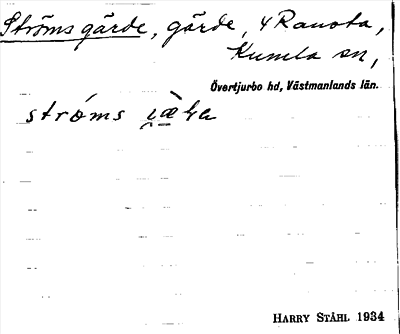 Ströms gärde, gärde, 4 Ransta,
Kumla sn,
Övertjurbo hd, Västmanlands län.
ströms
HARRY STÅHL 1934